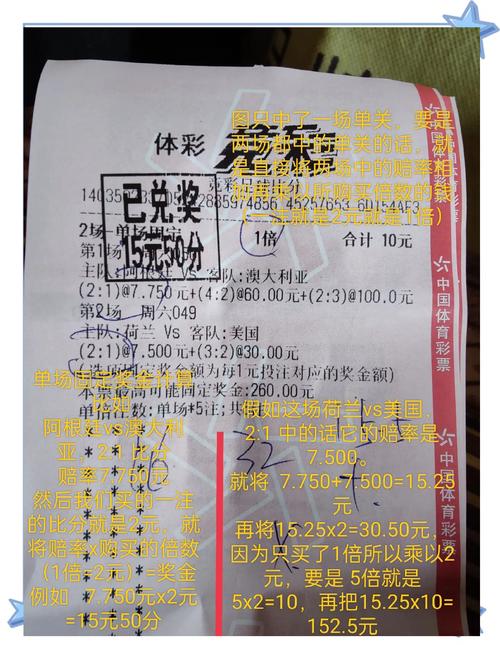 图只中了一场单关，要是
两场都中的单关的话，就
是直接将两场中的赔率相
（一注就是2元就是1倍）
体彩
竞彩
已兑奖
15元50分
2场-单场固定
1倍
合计 10元
第1场
主队:阿根廷 Vs 客队:澳大利亚
(2:1)@7.750元+(4:2)@60.00元+(2:3)@100.0元
第2场 周六049
主队:荷兰 Vs 客队:美国
(2:1)@7.500元+(3:2)@30.00元
(选项固定奖金额为每1元投注对应的奖金额)
本票最高可能固定奖金:260.00元
单场固定奖金计算
比如
阿根廷vs澳大利
亚，2:1 比分
赔率7.750元
然后我们买的一注
的比分就是2元，就
将赔率x购买的倍数
（1倍=2元）=奖金
例如 7.750元x2元
=15元50分
假如这场荷兰vs美国，
2:1 中的话它的赔率是
7.500。
就将 7.750+7.500=15.25
元
再将15.25x2=30.50元，
因为只买了1倍所以乘以2
元，要是 5倍就是
5x2=10，再把15.25x10=
152.5元
中国体育彩票
中国体育彩票
中国体育彩票